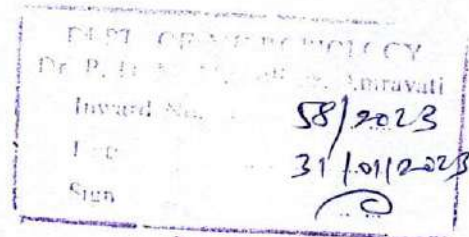 DEPT. OF MICROBIOLOGY
Dr. P. Amravati
Inward No. 58/2023
31/.01/2023
Sign